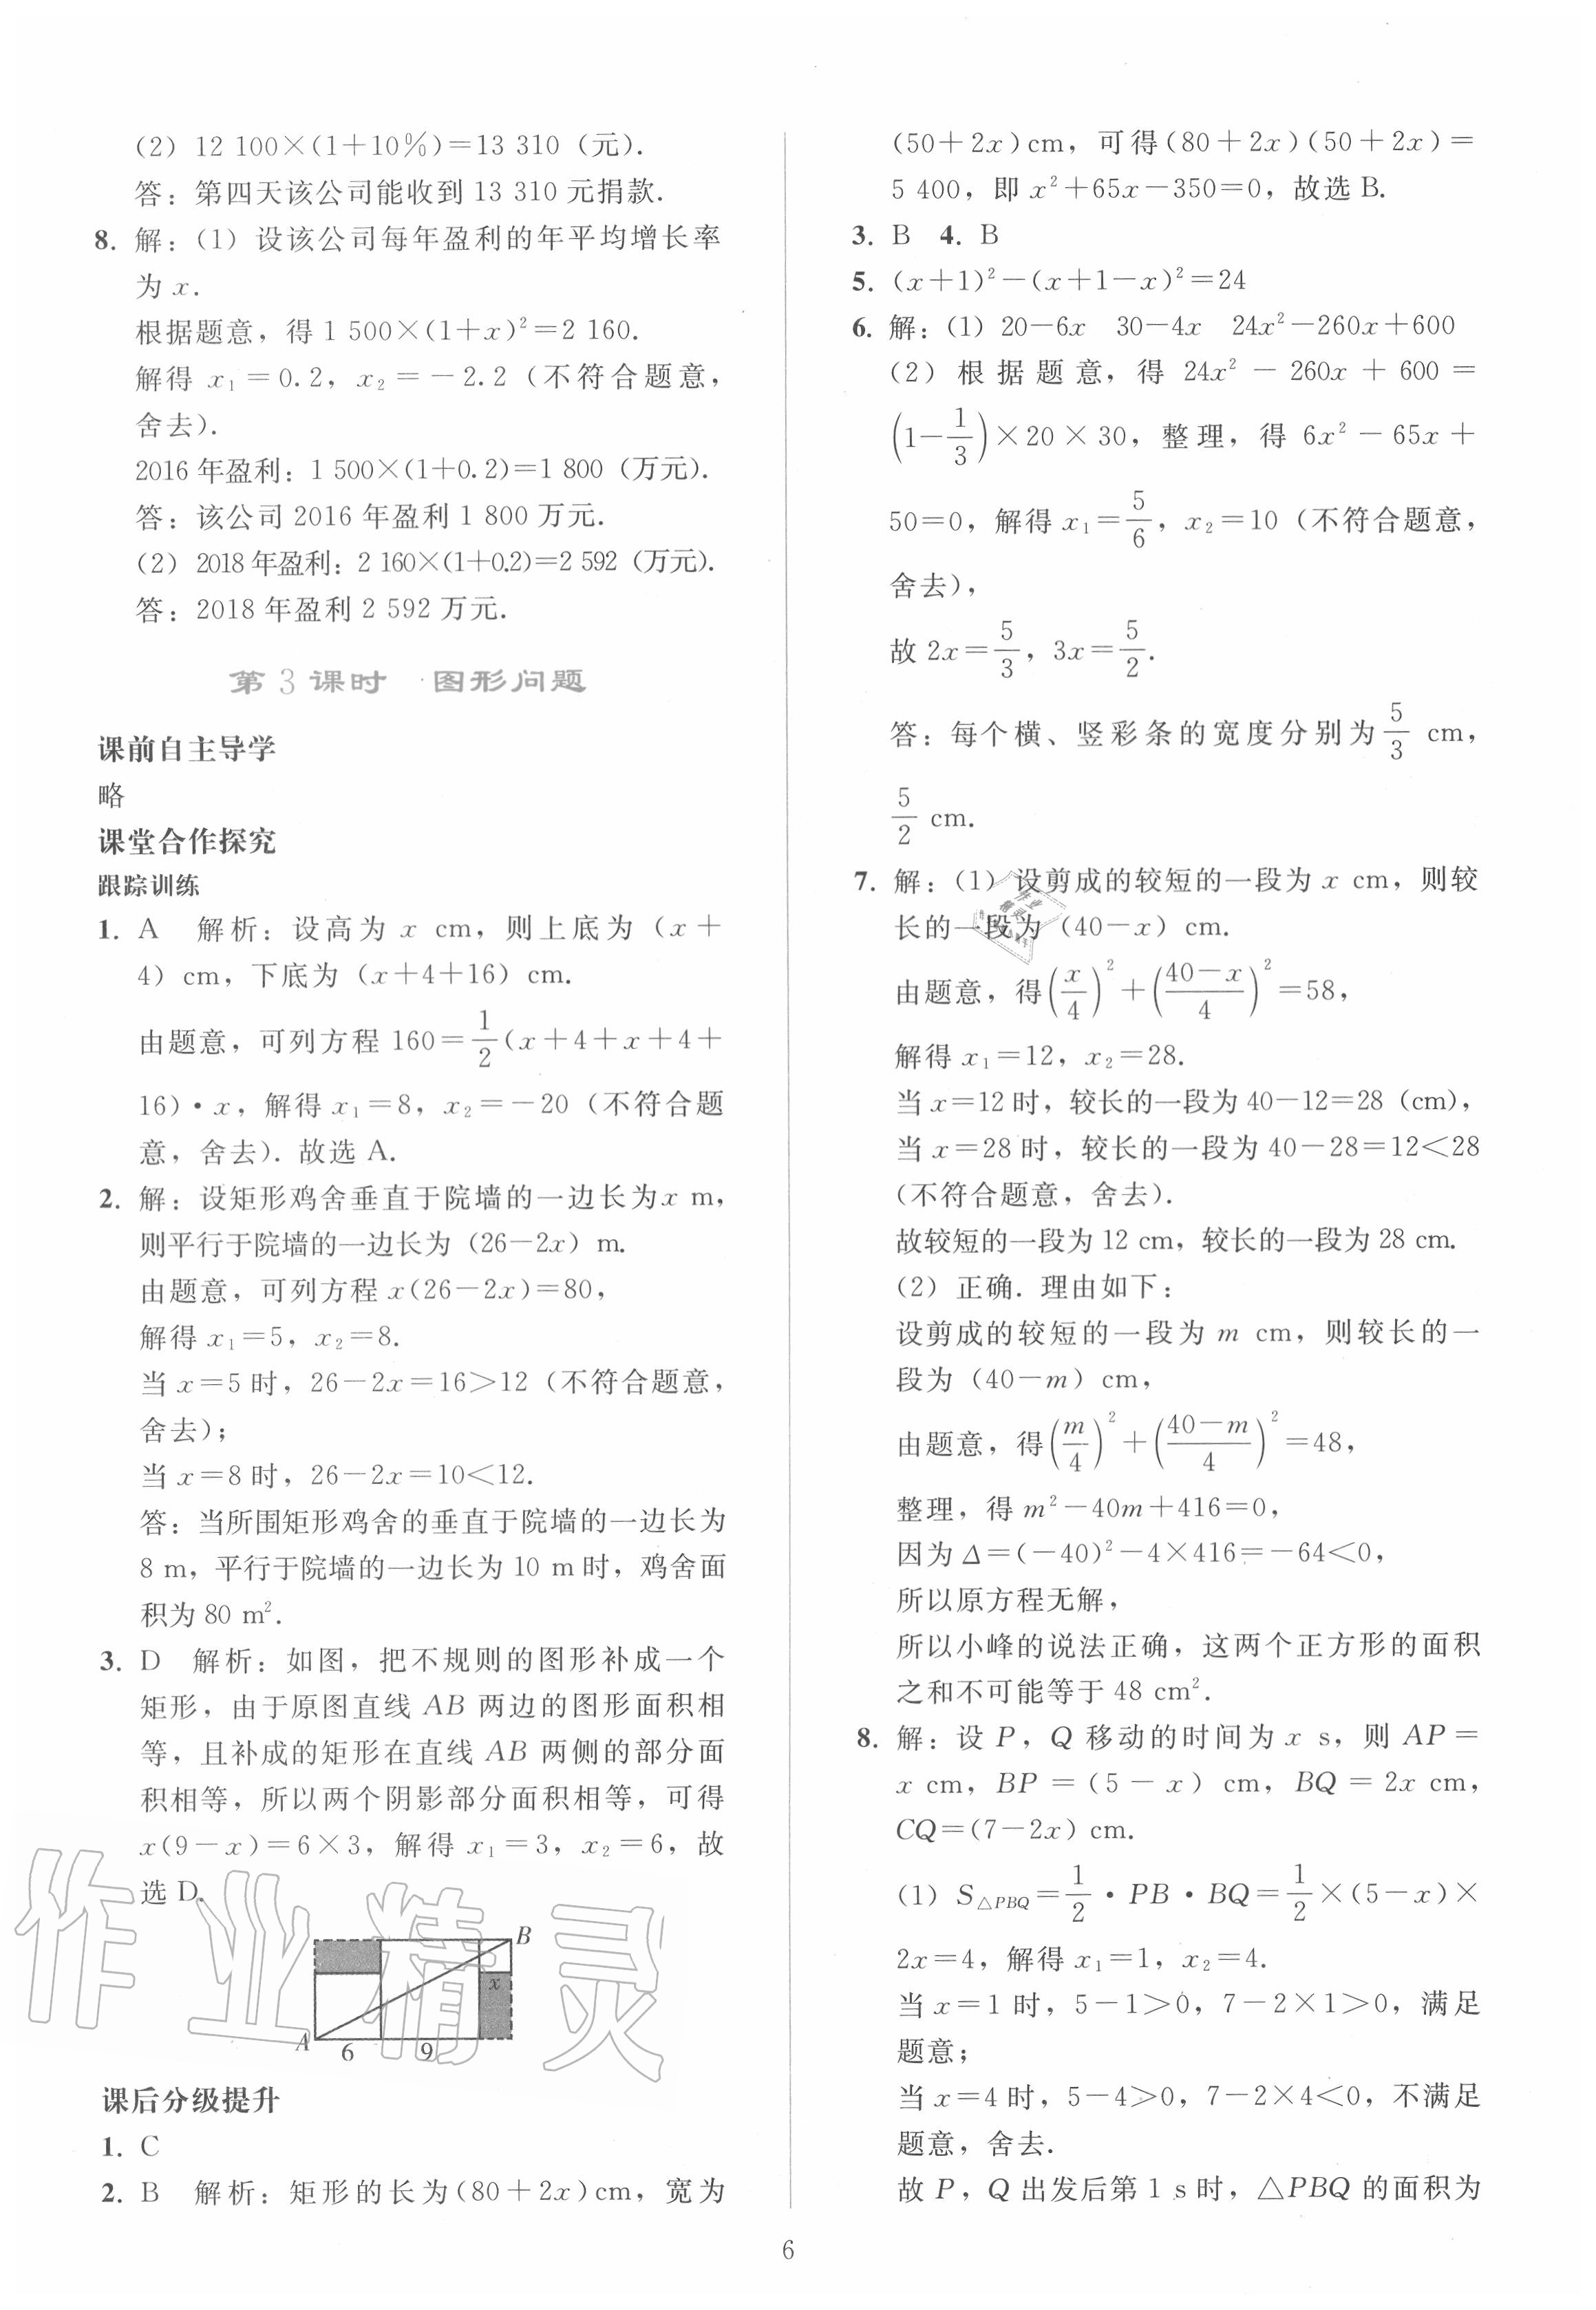 (2) 12 100×(1+10%)=13 310（元）.
答：第四天该公司能收到 13 310 元捐款.
8. 解：(1) 设该公司每年盈利的年平均增长率
为 x.
根据题意，得 1 500×(1+x)²=2 160.
解得 x₁=0.2，x₂=-2.2（不符合题意，
舍去）.
2016 年盈利：1 500×(1+0.2)=1 800（万元）.
答：该公司 2016 年盈利 1 800 万元.
(2) 2018 年盈利：2 160×(1+0.2)=2 592（万元）.
答：2018 年盈利 2 592 万元.
第 3 课时 图形问题
课前自主导学
略
课堂合作探究
跟踪训练
1. A 解析：设高为 x cm，则上底为（x+
4）cm，下底为（x+4+16）cm.
由题意，可列方程 160=1/2(x+4+x+4+
16)·x，解得 x₁=8，x₂=-20（不符合题
意，舍去）. 故选 A.
2. 解：设矩形鸡舍垂直于院墙的一边长为x m，
则平行于院墙的一边长为（26-2x）m.
由题意，可列方程 x(26-2x)=80，
解得 x₁=5，x₂=8.
当 x=5 时，26-2x=16>12（不符合题意，
舍去）；
当 x=8 时，26-2x=10<12.
答：当所围矩形鸡舍的垂直于院墙的一边长为
8 m，平行于院墙的一边长为 10 m 时，鸡舍面
积为 80 m².
3. D 解析：如图，把不规则的图形补成一个
矩形，由于原图直线 AB 两边的图形面积相
等，且补成的矩形在直线 AB 两侧的部分面
积相等，所以两个阴影部分面积相等，可得
x(9-x)=6×3，解得 x₁=3，x₂=6，故
选 D.
B
x
A
6 9
作业精灵
课后分级提升
1. C
2. B 解析：矩形的长为(80+2x)cm，宽为
(50+2x)cm，可得(80+2x)(50+2x)=
5 400，即 x²+65x-350=0，故选 B.
3. B 4. B
5. (x+1)²-(x+1-x)²=24
6. 解：(1) 20-6x 30-4x 24x²-260x+600
(2) 根据题意，得 24x²-260x+600=
(1-1/3)×20×30，整理，得 6x²-65x+
50=0，解得 x₁=5/6，x₂=10（不符合题意，
舍去），
故 2x=5/3，3x=5/2.
答：每个横、竖彩条的宽度分别为 5/3 cm，
5/2 cm.
7. 解：(1) 设剪成的较短的一段为 x cm，则较
长的一段为（40-x）cm.
由题意，得(x/4)²+((40-x)/4)²=58，
解得 x₁=12，x₂=28.
当 x=12 时，较长的一段为 40-12=28（cm），
当 x=28 时，较长的一段为 40-28=12<28
（不符合题意，舍去）.
故较短的一段为 12 cm，较长的一段为 28 cm.
(2) 正确. 理由如下：
设剪成的较短的一段为 m cm，则较长的一
段为（40-m）cm，
由题意，得(m/4)²+((40-m)/4)²=48，
整理，得 m²-40m+416=0，
因为 Δ=(-40)²-4×416=-64<0，
所以原方程无解，
所以小峰的说法正确，这两个正方形的面积
之和不可能等于 48 cm².
8. 解：设 P，Q 移动的时间为 x s，则 AP=
x cm，BP=(5-x) cm，BQ=2x cm，
CQ=(7-2x) cm.
(1) S△PBQ=1/2·PB·BQ=1/2×(5-x)×
2x=4，解得 x₁=1，x₂=4.
当 x=1 时，5-1>0，7-2×1>0，满足
题意；
当 x=4 时，5-4>0，7-2×4<0，不满足
题意，舍去.
故 P，Q 出发后第 1 s 时，△PBQ 的面积为
6